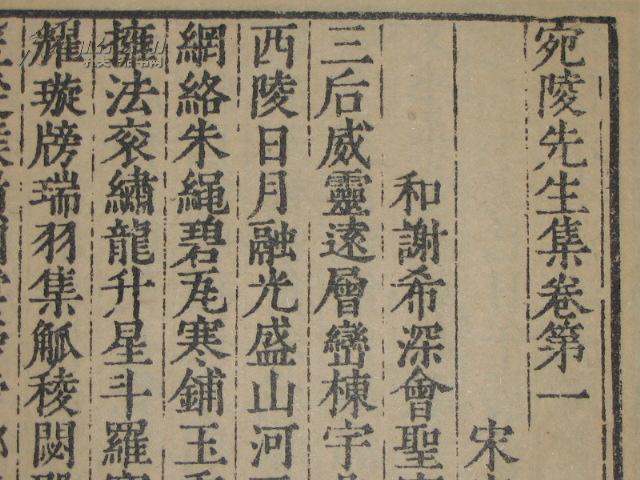 宛陵先生集卷第一
宋
和謝希深會聖
三后威靈遠層巒棟宇
西陵日月融光盛山河
網絡朱繩碧瓦寒鋪玉
擁法衮繡龍升星斗羅
耀璇牓瑞羽集觚稜閟